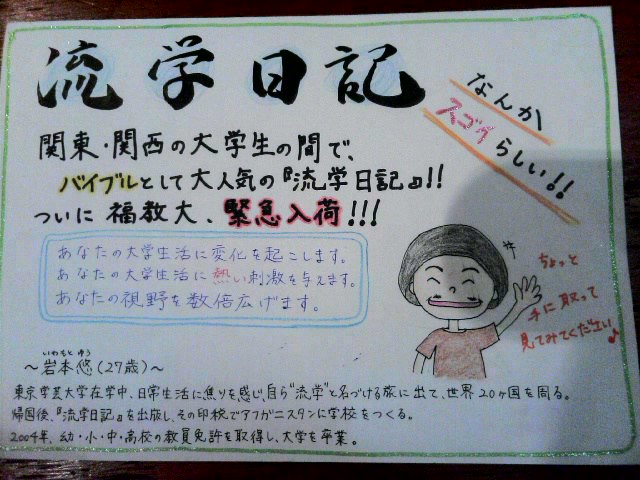 流学日記
なんか
スゴイ
らしい!!
関東・関西の大学生の間で、
バイブルとして大人気の『流学日記』!!
ついに福教大、緊急入荷!!!
あなたの大学生活に変化を起こします。
あなたの大学生活に熱い刺激を与えます。
あなたの視野を数倍広げます。
ちょっと
手に取って
見てみてください♪
いわもと ゆう
〜岩本悠(27歳)〜
東京学芸大学在学中、日常生活に焦りを感じ、自ら“流学”と名づける旅に出て、世界20ヶ国を周る。
帰国後、『流学日記』を出版し、その印税でアフガニスタンに学校をつくる。
2004年、幼・小・中・高校の教員免許を取得し、大学を卒業。